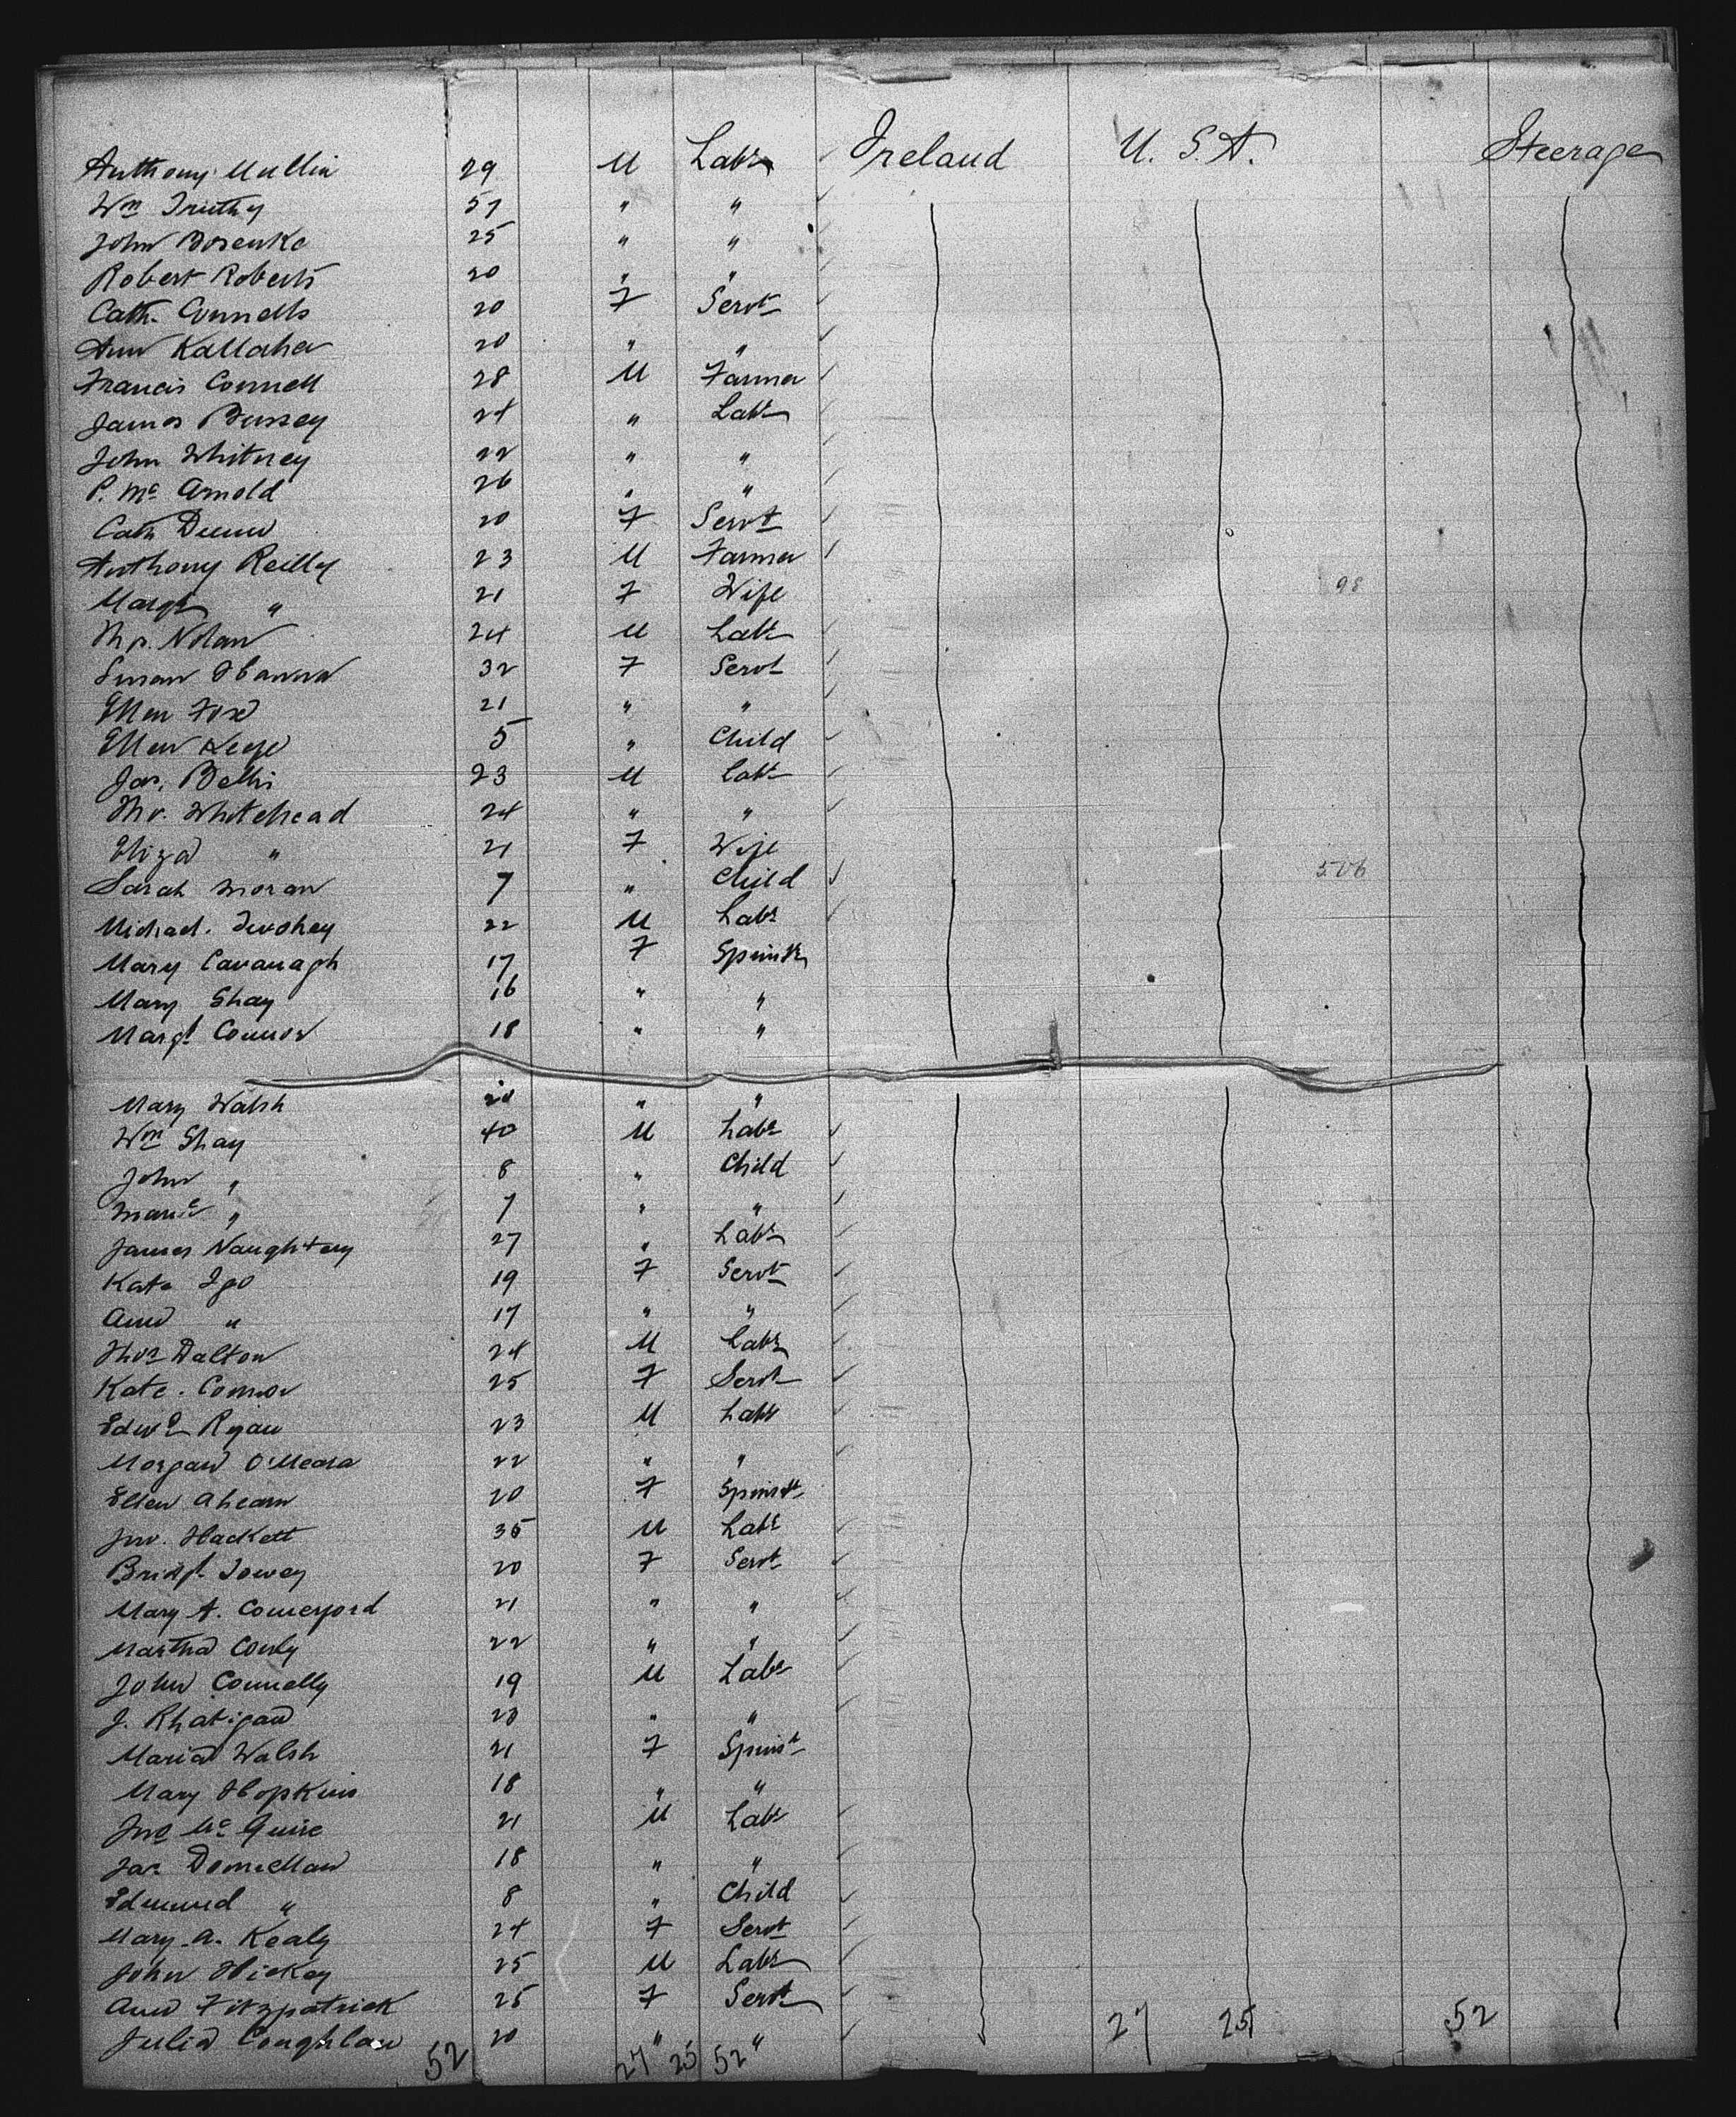 Anthony Mullin 29 M Labr Ireland U. S. A. Steerage
Wm 57 " "
John Bosenko 25 " "
Robert Roberts 20 " "
Cath. Connells 20 F Servt
Ann Kallaher 20 " "
Francis Connell 28 M Farmer
James Bussey 24 " Labr
John Whitney 22 " "
P. Mc Arnold 26 " "
Cath Dunn 20 F Servt
Anthony Reilly 23 M Farmer
Margt " 21 F Wife 98
Thos. Nolan 24 M Labr
Susan Hanna 32 F Servt
Ellen Fox 21 " "
Ellen Keefe 5 " Child
Jas. 23 M Labr
Thos. Whitehead 24 " "
Eliza " 21 F Wife
Sarah Moran 7 " Child
Michael. Twohey 22 M Labr
Mary Cavanagh 17 F Spinstr
Mary Shay 16 " "
Margt Connor 18 " "
Mary Walsh 20 " "
Wm Shay 40 M Labr
John " 8 " Child
" 7 " "
James Naughtery 27 " Labr
Kate Igo 19 F Servt
Ann " 17 " "
Thos Dalton 24 M Labr
Kate. Connor 25 F Servt
Edwd Ryan 23 M Labr
Morgan O'Meara 22 " "
Ellen Ahearn 20 F Spinstr
Jno. Hackett 35 M Labr
Bridgt Towey 20 F Servt
Mary A. Comerford 21 " "
Martha Conly 22 " "
John Connelly 19 M Labr
J. Rhatigan 20 " "
Maria Walsh 21 F Spinst
Mary Hopkins 18 " "
Jno Mc Guire 21 M Labr
Jas Donnellan 18 " "
Edmund " 8 " Child
Mary. A. Kealy 24 F Servt
John Hickey 25 M Labr
Ann Fitzpatrick 25 F Servt
Julia Coughlan 20 " " 27 25 52
52 27 25 52